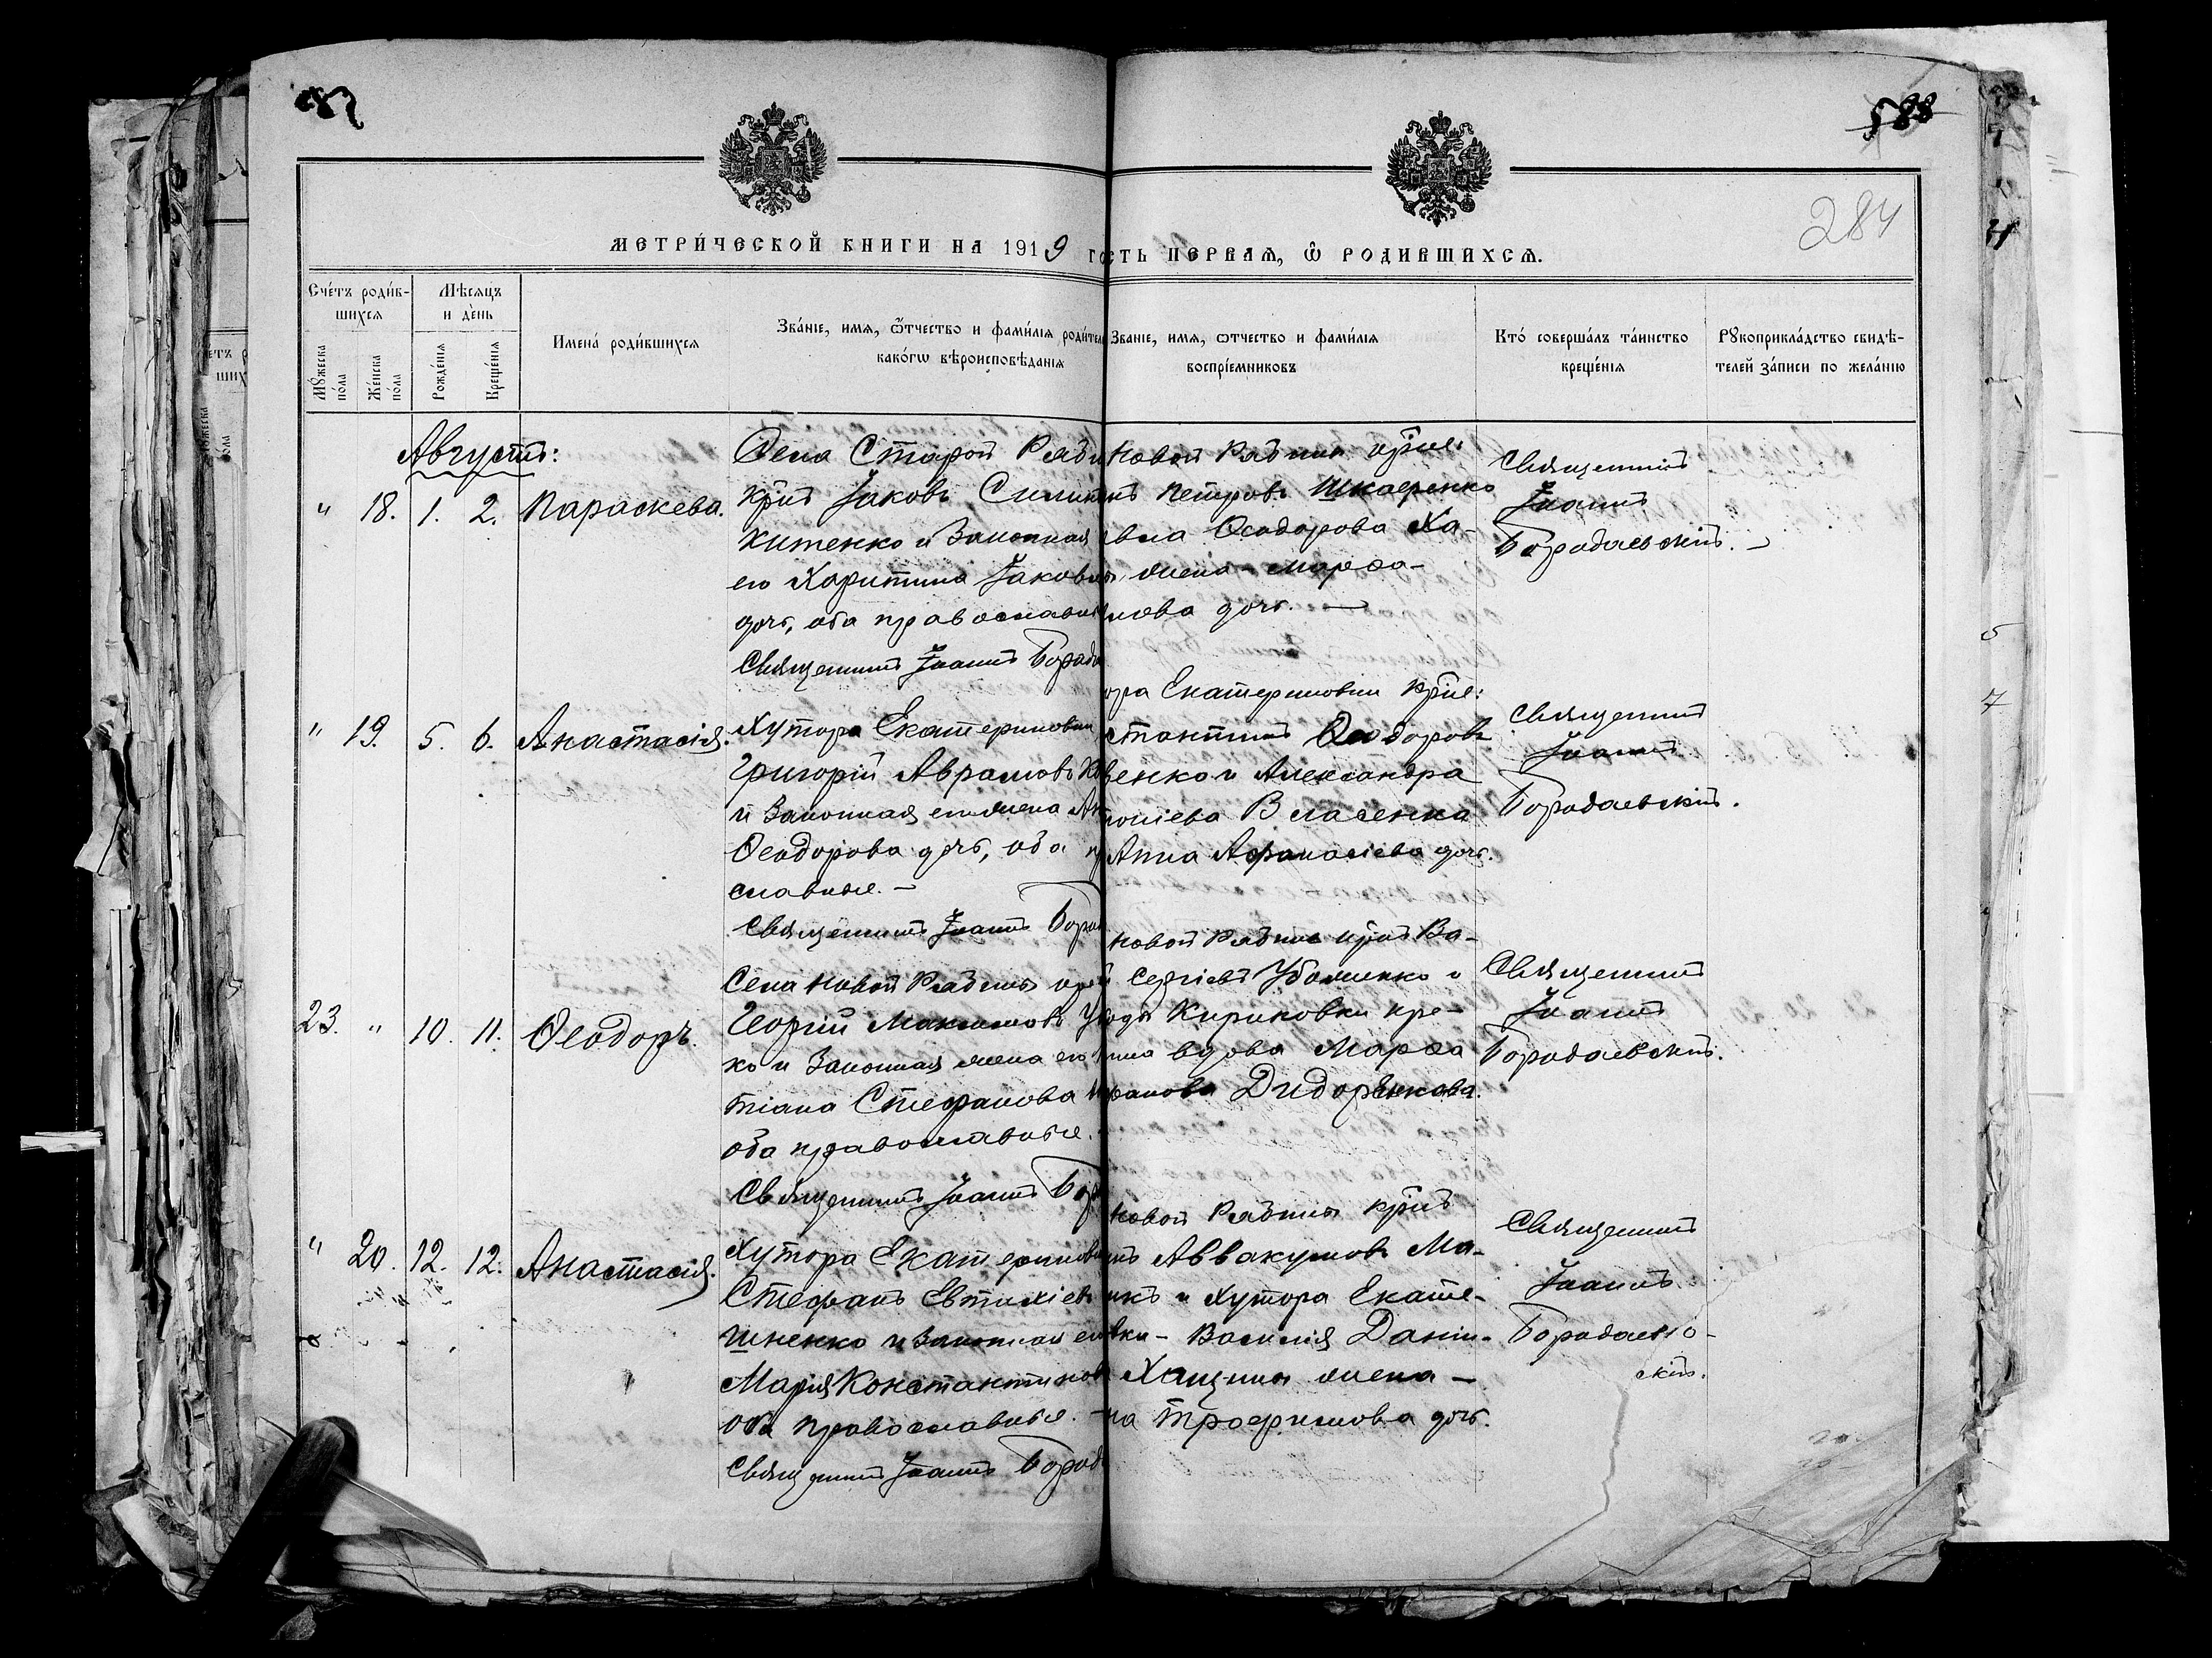 588
284
МЕТРИ́ЧЕСКОЙ КНИГИ НА 1919 ГО
СТЬ ПЕРВАЯ, Ѡ РОДИВШИХСЯ.
Сче́тъ роди́в-
шихся
Мѣсяцъ
и де́нь
Му́жеска
по́ла
Же́нска
по́ла
Рожде́нія
Креще́нія
Имена́ роди́вшихся
Зва́ніе, имя, ѻ́тчество и фами́лія родител
како́гѡ вѣроисповѣ́данія
Зва́ніе, имя, ѻтчество и фами́лія
воспріе́мниковъ
Кто́ соверша́лъ та́инство
креще́нія
Рꙋкоприкла́дство свидѣ́-
телей за́писи по жела́нію
Августъ:
" 18. 1. 2. Параскева.
Села Старой Ряби
кр̃нъ Іаковъ Сили
китенко и Законная
его Харитина Іаковл
дочь, оба православн
Священникъ Іоаннъ Борода
Новой Рябины
нъ Петровъ Шкаеренко
Ѳеодорова Ха-
жена - Марѳа
мова дочь. —
Священникъ
Іоаннъ
Бородаевскій.
" 19. 5. 6. Анастасія.
Хутора Екатериновки
Григорій Аврамовъ К
и Законная его жена Ан
Ѳеодорова дочь, оба п
славные. -
Священникъ Іоаннъ Бород
ора Екатериновки
стантинъ Ѳеодоровъ
венко и Александра
Власенка
Анна Аѳанасіева дочь.
Священникъ
Іоаннъ
Бородаевскій.
23. " 10. 11. Ѳеодоръ.
Села Новой Рябины
Георгій Максимовъ У
ко и Законная жена его
тіана Стефанова
оба православные.
Священникъ Іоаннъ Бор
Новой Рябины кр̃нъ Ва-
Сергіевъ и
Кириковки кре-
вдова Марѳа
фанова Дидоренкова.
Священникъ
Іоаннъ
Бородаевскій.
" 20. 12. 12. Анастасія.
Хутора Екатеринов
Стефанъ Евтихіевъ
шненко и Законная ег
Марія Константинов
Оба православные. -
Священникъ Іоаннъ Бород
Новой Рябины кр̃нъ
нъ Аввакумовъ Ма-
и хутора Екате-
вки - Василія Дани-
Хащины жена -
на Трофимова дочь.
Священникъ
Іоаннъ
Бородаев-
скій.